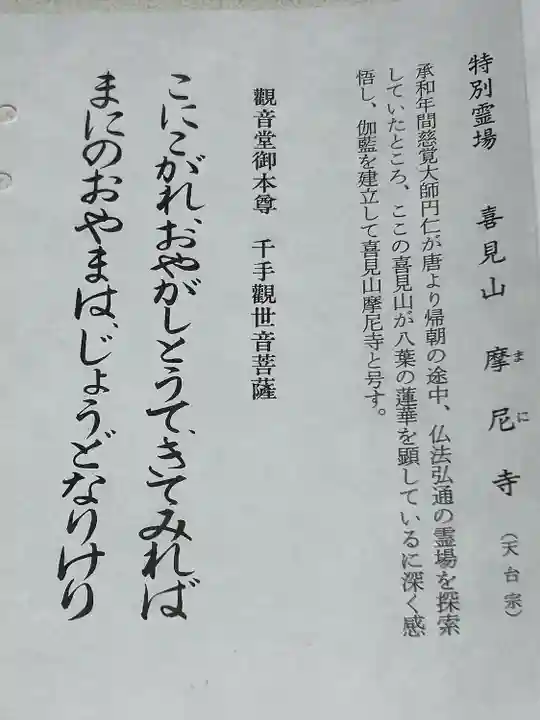 特別霊場 喜見山 摩尼寺(天台宗)
まに
承和年間慈覚大師円仁が唐より帰朝の途中、仏法弘通の霊場を探索
していたところ、ここの喜見山が八葉の蓮華を顕しているに深く感
悟し、伽藍を建立して喜見山摩尼寺と号す。
觀音堂御本尊 千手觀世音菩薩
こにこがれ、おやがしとうて、きてみれば
まにのおやまは、じょうどなりけり